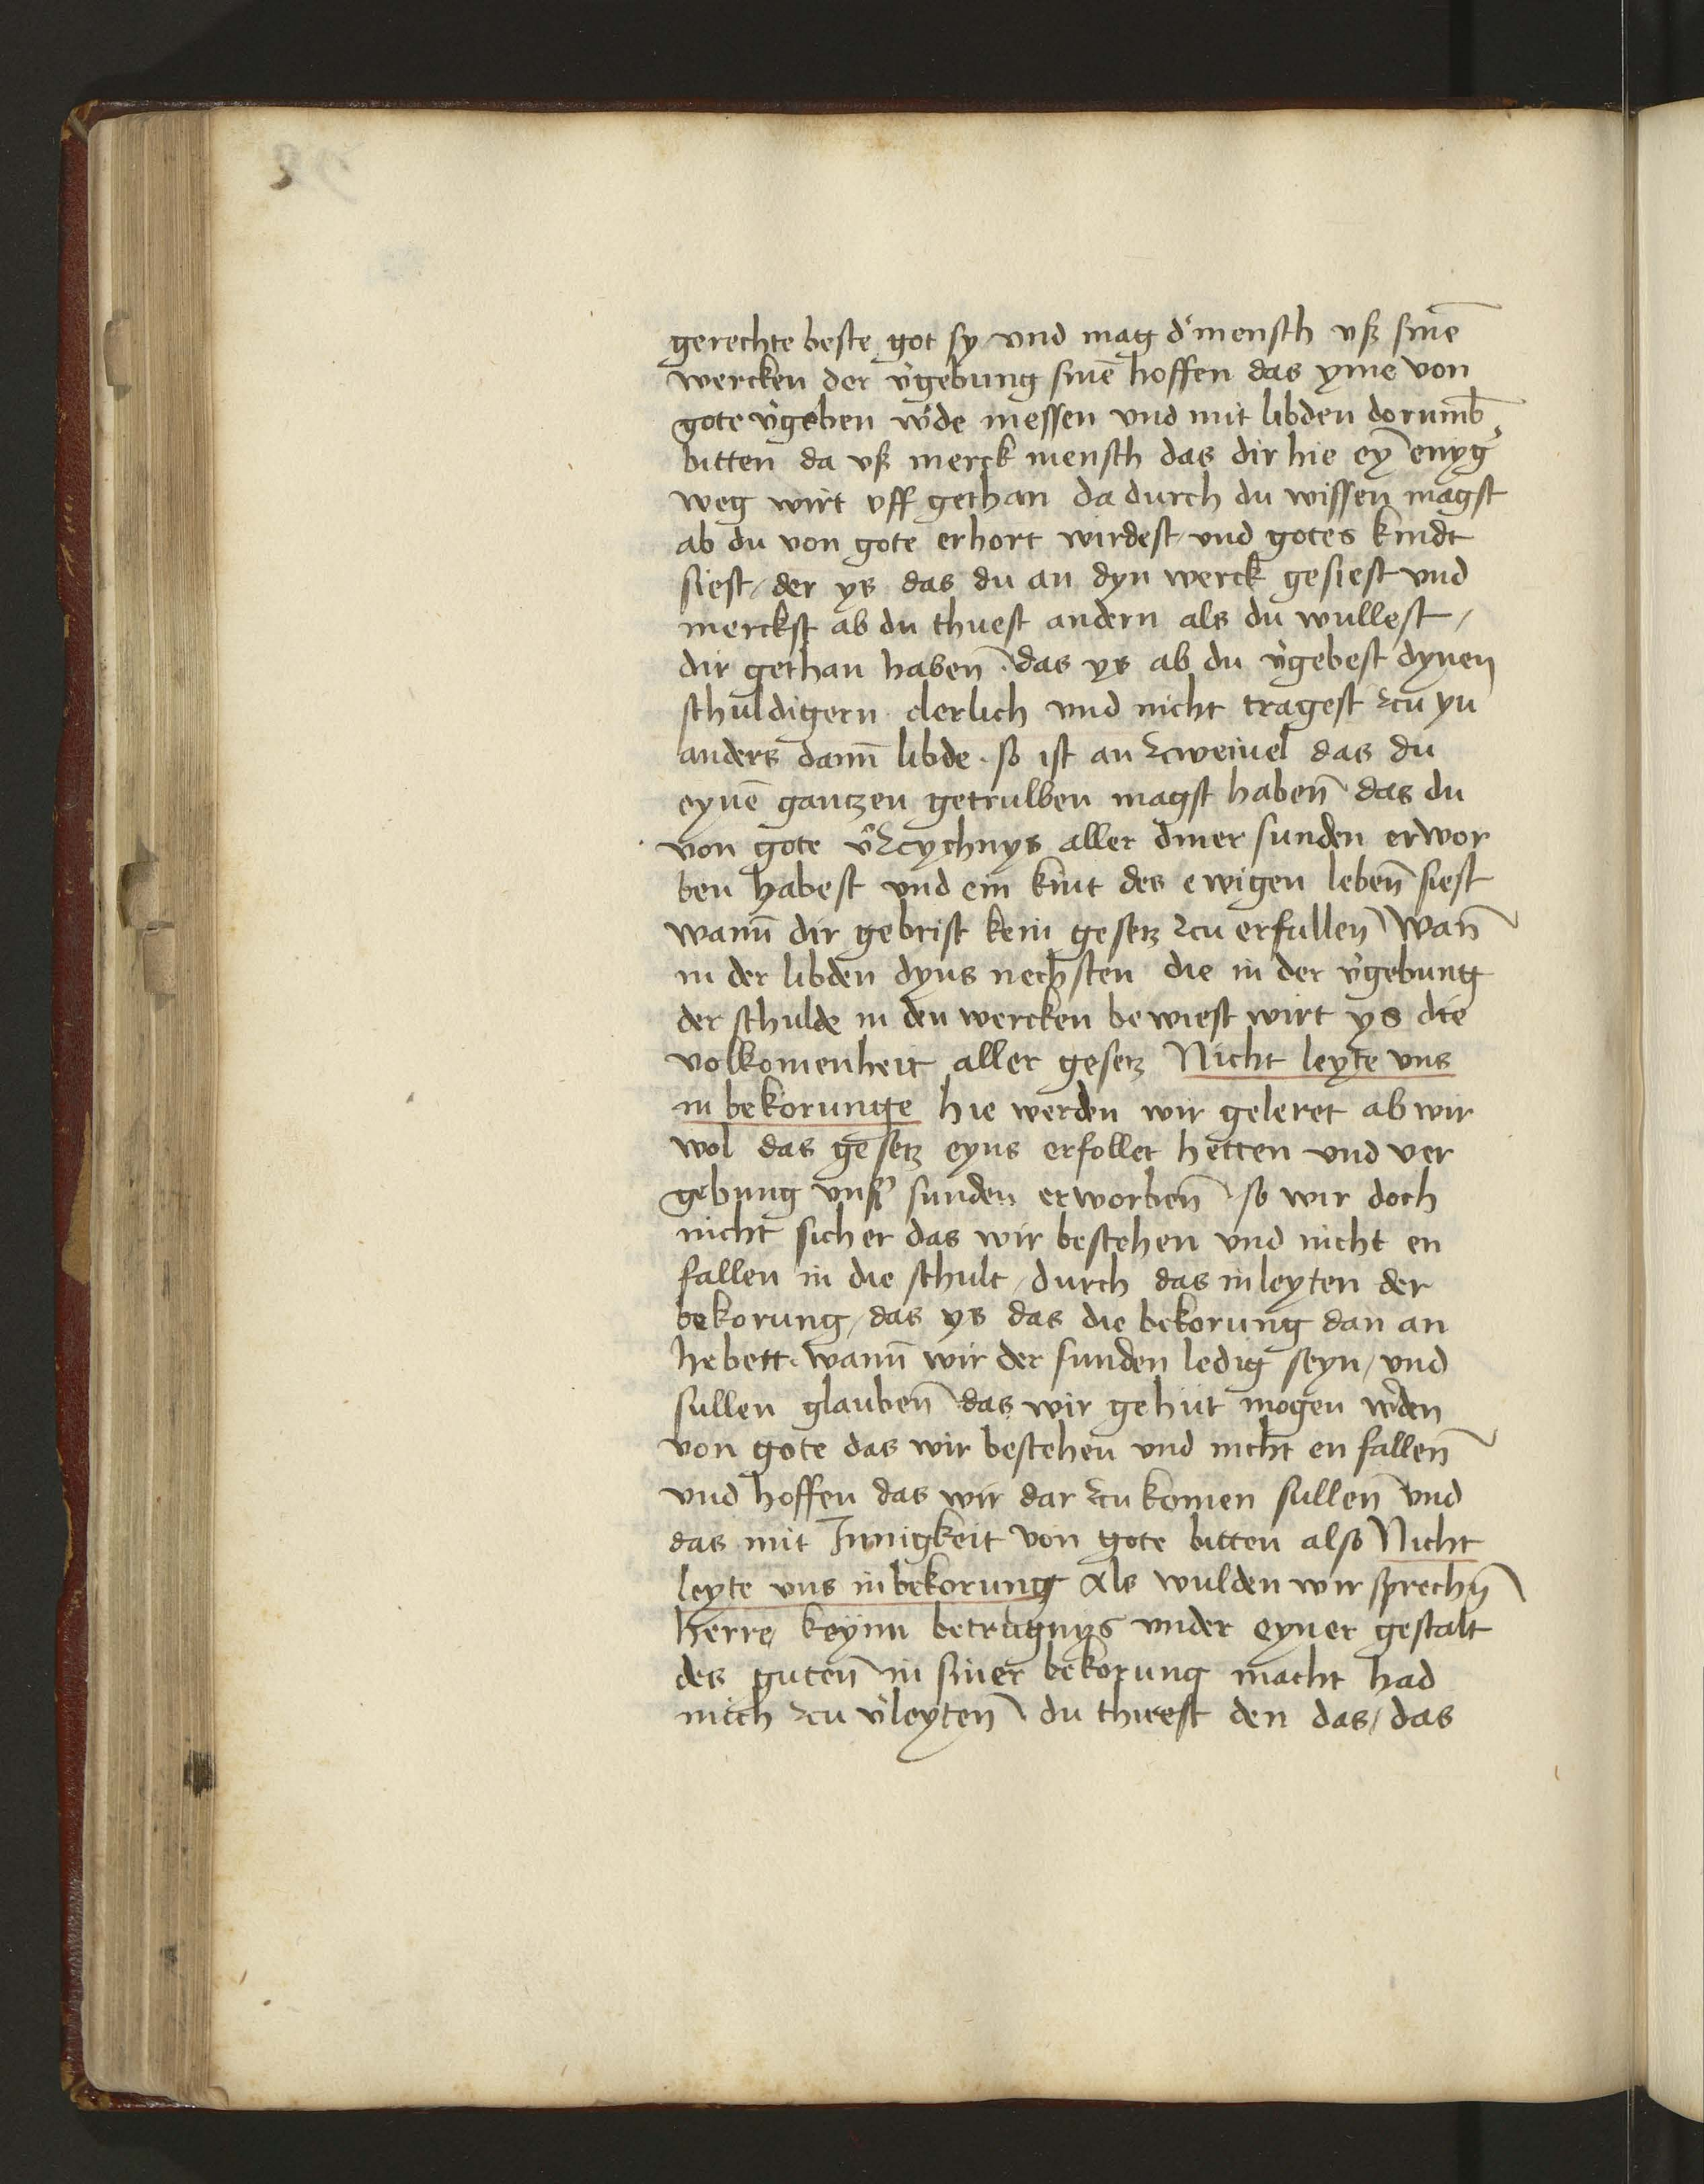 gerechte beste got sy und mag d' mensch uß sinē
wercken der v'gebung sinē hoffen das yme von
gote v'geben w'de messen und mit libden dorumb
bitten da uß merck mensch das dir hie eȳ enyg'
weg wirt uff gethan da durch du wissen magst
ab du von gote erhort wirdest und gotes kindt
siest / der ys das du an dyn werck gesiest und
merckst ab du thuest andern als du wullest /
dir gethan haben̄ . das ys ab du v'gebest dynen
schuldigern clerlich und nicht tragest zcu yn
anders dann̄ libde . so ist an zcweiuel das du
eynē gantzen getrulben magst haben̄ das du
von gote v'zcychnys aller diner sunden erwor
ben habest und ein kint des ewigen leben̄ siest
wann̄ dir gebrist kein gesetz zcu erfullen̄ wan̄
in der libden dyns nechsten die in der v'gebung
der schulde in den wercken bewiest wirt ys die
volkomenheit aller gesetz Nicht leyte uns
in bekorunge hie werden wir geleret ab wir
wol das gesetz eyns erfollet hetten und ver
gebung uns' sunden erworben̄ so wir doch
nicht sicher das wir bestehen und nicht en
fallen in die schult / durch das inleyten der
bekorung / das ys das die bekorung dan an
hebett . wann̄ wir der sunden ledig seyn / und
sullen glauben̄ das wir gehut mogen w'den
von gote das wir bestehen und nicht en fallen̄
und hoffen das wir dar zcu komen sullen̄ und
das mit Innigkeit von gote bitten also Nicht
leyte uns in bekorung Als wulden wir sprechn̄
herre keynn betrugnys under eyner gestalt
des guten̄ in siner bekorung macht had
mich zcu v'leyten̄ du thuest den das / das